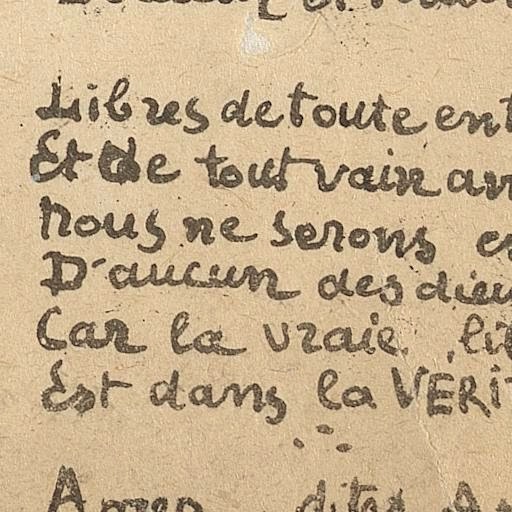 Libres de toute ent
Et de tout vain
Nous ne serons es
D'aucun des dieu
Car la vraie lib
Est dans la VERIT
dites